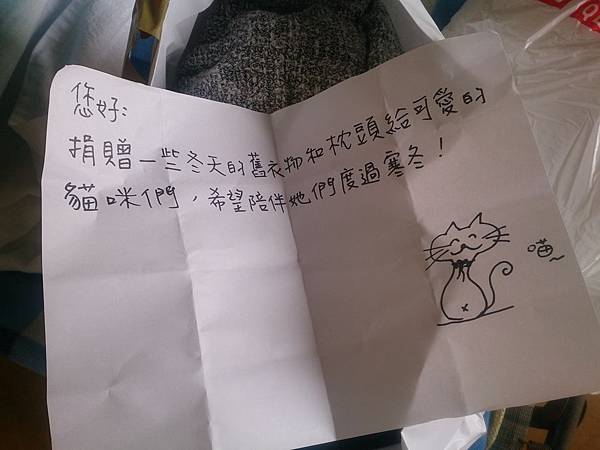 您好:
捐贈一些冬天的舊衣物和枕頭給可愛的
貓咪們，希望陪伴她們度過寒冬！
喵~